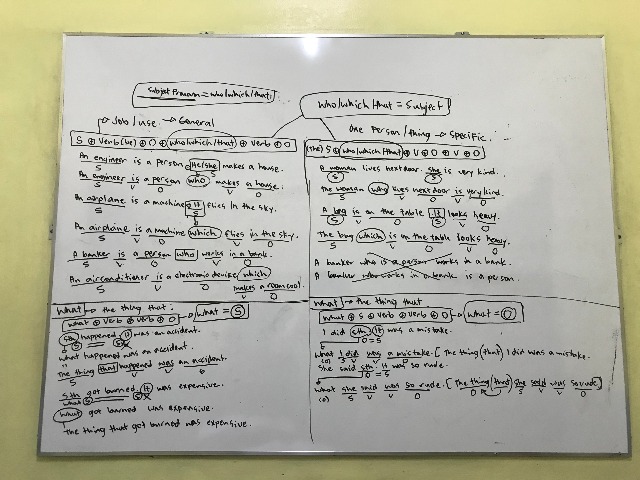 Subject Pronoun = who/which/that.
who/which/that = Subject
Job/use → General
S ⊕ verb(be) ⊕ O ⊕ who/which/that ⊕ verb ⊕ O
An engineer is a person. He/she makes a house.
S S
An engineer is a person who makes a house.
S V O V O
An airplane is a machine. It flies in the sky.
S
An airplane is a machine which flies in the sky.
S V O V O
A banker is a person who works in a bank.
An airconditioner is a electronic device which
makes a room cool.
V O
one Person/thing → Specific.
(the) S ⊕ who/which/that ⊕ V ⊕ O ⊕ V ⊕ O
A woman lives next door. she is very kind.
S S
the woman who lives next door is very kind.
S V O V O
A bag is on the table. It looks heavy.
S V O S V O
The bag which is on the table looks heavy.
S V O V O
A banker who is a person works in a bank.
A banker who works in a bank is a person.
What → the thing that:
what ⊕ verb ⊕ verb ⊕ O → what = S
sth happened. It was an accident.
S S
what happened was an accident.
"
The thing that happened was an accident.
S V O
sth got burned. It was expensive.
what S S
what got burned was expensive.
the thing that got burned was expensive.
what → the thing that
what ⊕ S ⊕ verb ⊕ verb ⊕ O → what = O
I did sth. It was a mistake.
O = S
what I did was a mistake. [The thing (that) I did was a mistake.
(O) S V V O
She said sth. It was so rude.
O = S
what she said was so rude. [The thing (that) she said was so rude.]
(O) S V V O O S V V O